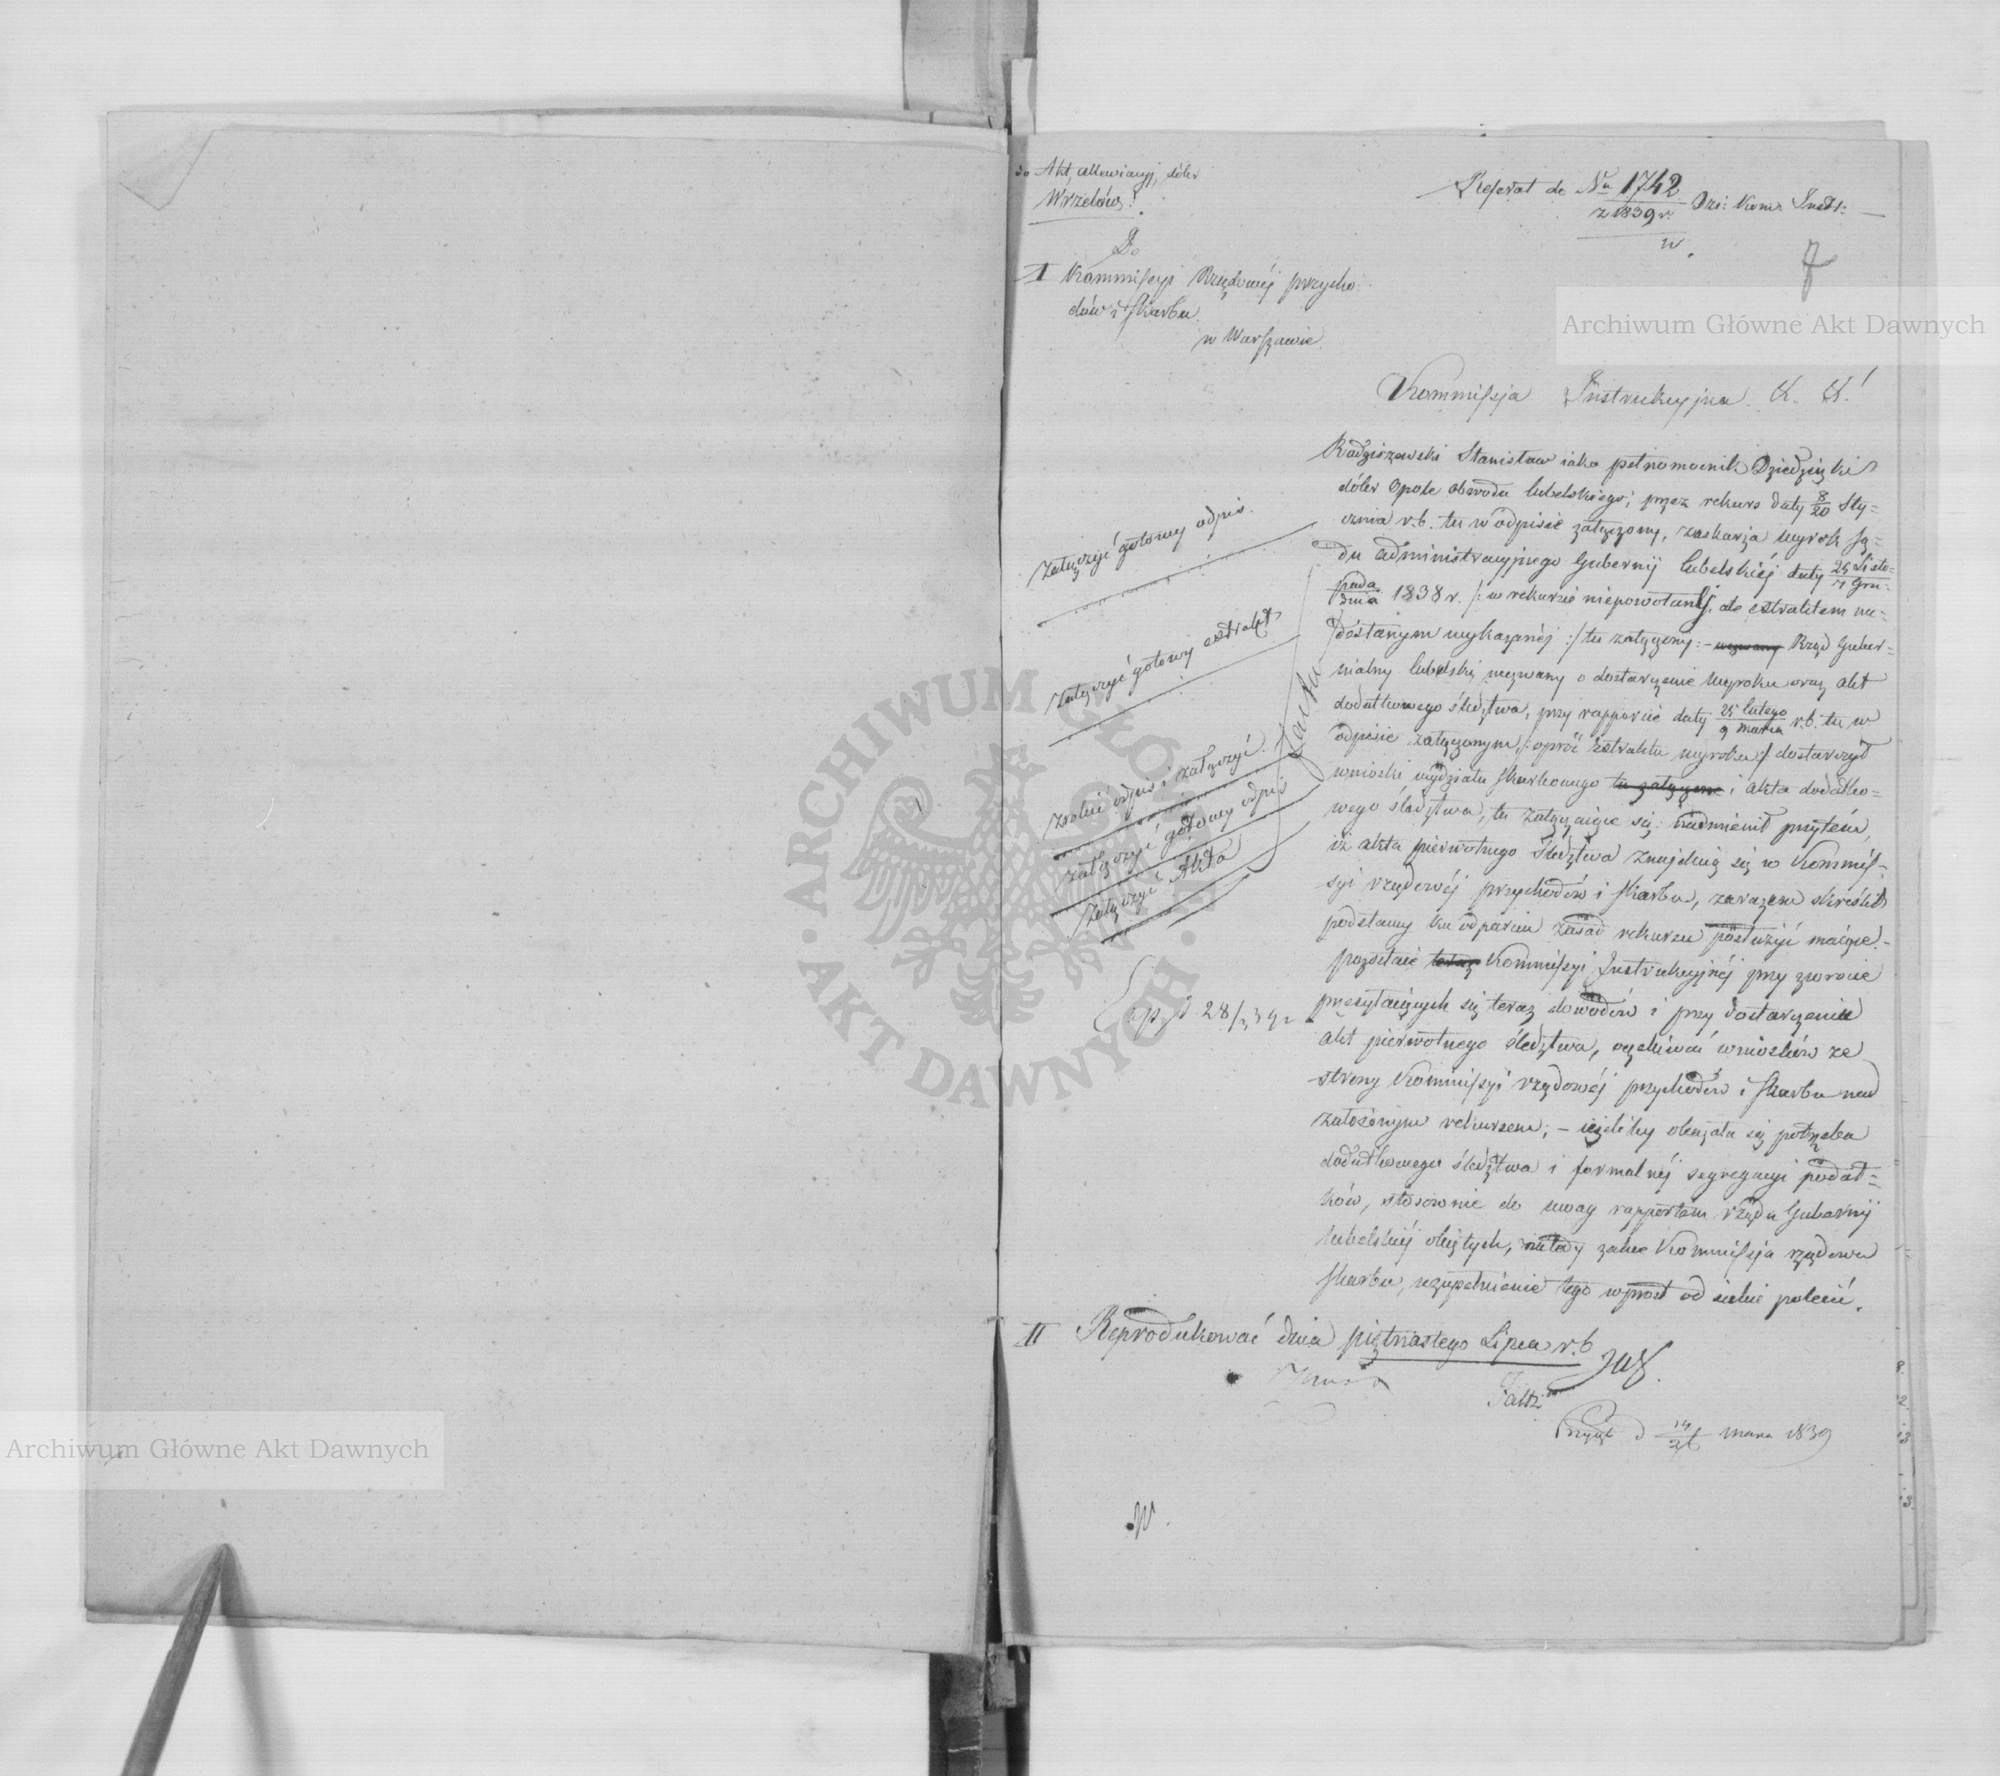 do Akt, allewiacyj, dóbr
Wrzelów.
Referat do Nu 1742
z 1839 r.
Dzi: Kom: Instr:
w.
7
Do
I Kommissyi Rządowéj przycho-
dów i Skarbu
w Warszawie.
Kommissja Instrukcyjna. K. K!
Radziszewski Stanisław iako pełnomocnik Dziedziczki
dóbr Opole obwodu lubelskiego, przez rekurs daty 8/20 Sty-
cznia r.b. tu w odpisie załączony, zaskarża wyrok Są-
du administracyjnego Gubernij lubelskiéj daty 25 Listo-/7 Gru-
pada/dnia 1838 r. /: w rekursie niepowołanéj, ale extraktem na-
désłanym wykazanéj :/ tu załączony: – wezwany Rząd Guber-
nialny lubelski wezwany o dostarczenie Wyroku oraz akt
dodatkowego śledztwa, przy rapporcie daty 25 lutego/9 marca r.b. tu w
odpisie załączonym, /: oprócz extraktu wyroku :/ dostarczył
wnioski wydziału skarbowego tu załączone i akta dodatko-
wego śledztwa, tu załączaiące się: nadmienił przytém,
iż akta pierwotnego śledztwa znajdują się w Kommis-
syi rządowéj przychodów i Skarbu, zarazem skreślił
podstawy ku odparciu zasad rekursu posłużyć maiące. –
pozostaie teraz Kommissyi Instrukcyjnéj przy zwrocie
przesyłaiących się teraz dowodów i przy dostarczeniu
akt pierwotnego śledztwa, oczekiwać wniosków ze
strony Kommissyi rządowéj przychodów i Skarbu nad
założonym rekursem; – ieżeliby okazała się potrzeba
dodatkowego śledztwa i formalnéj segregacyi podat-
ków, stosownie do uwag rapportem rządu Gubernij
lubelskiéj objętych, natedy zechce Kommissja rządowa
Skarbu, uzupełnienie tego wprost od siebie polecić.
Załączyć gotowy odpis.
Załączyć gotowy extrakt
zrobić odpis i załączyć.
załączyć gotowy odpis
Załączyć Akta
II Reprodukować dnia piętnastego Lipca r.b
14/26 marca 1839
W.
Archiwum Główne Akt Dawnych
Archiwum Główne Akt Dawnych
ARCHIWUM GŁÓWNE · AKT DAWNYCH ·